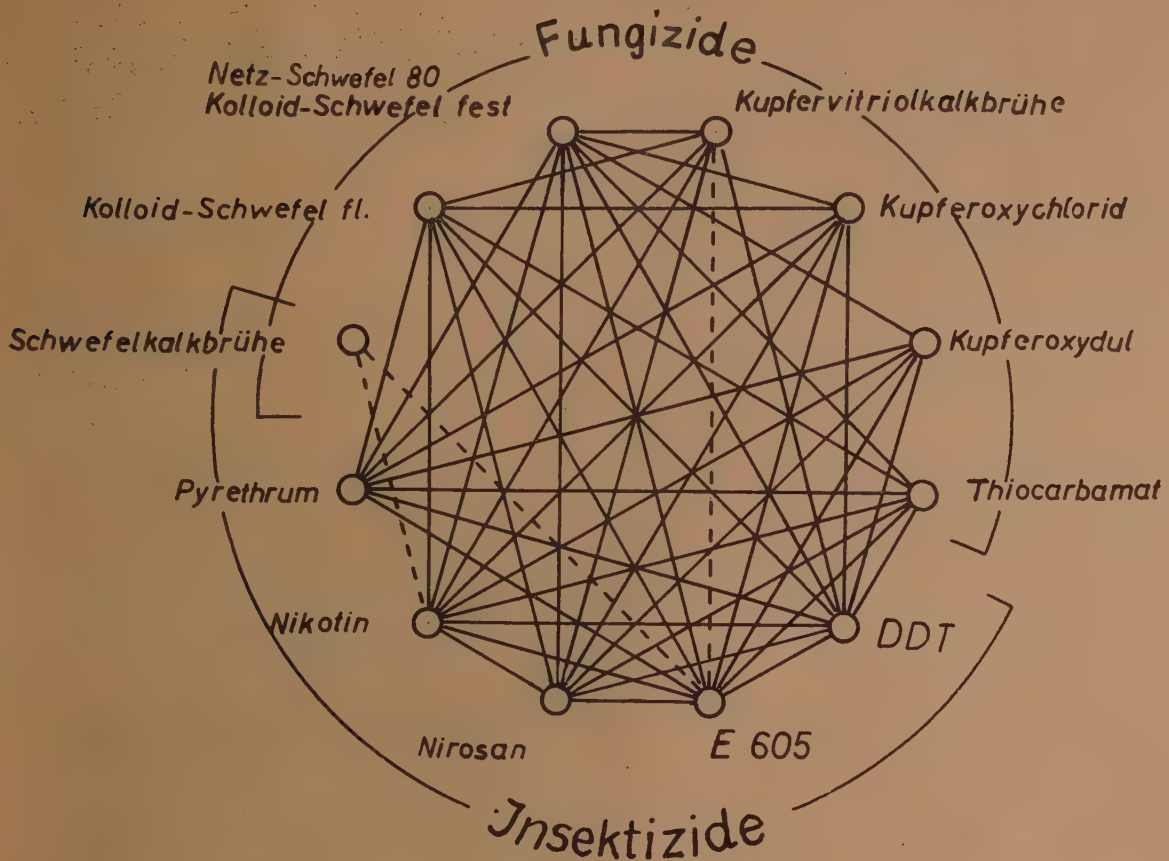 Fungizide
Netz-Schwefel 80
Kolloid-Schwefel fest
Kupfervitriolkalkbrühe
Kolloid-Schwefel fl.
Kupferoxychlorid
Schwefelkalkbrühe
Kupferoxydul
Pyrethrum
Thiocarbamat
Nikotin
DDT
Nirosan
E 605
Jnsektizide